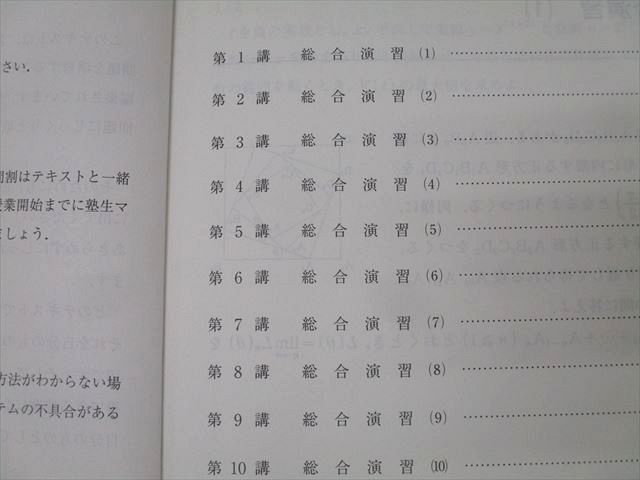 さい.
間割はテキストと一緒
授業開始までに塾生マ
ましょう.
方法がわからない場
テムの不具合がある
第 1 講 総 合 演 習 (1) ……………
第 2 講 総 合 演 習 (2) ……………
第 3 講 総 合 演 習 (3) ……………
第 4 講 総 合 演 習 (4) ……………
第 5 講 総 合 演 習 (5) ……………
第 6 講 総 合 演 習 (6) ……………
第 7 講 総 合 演 習 (7) ……………
第 8 講 総 合 演 習 (8) ……………
第 9 講 総 合 演 習 (9) ……………
第 10 講 総 合 演 習 (10) ……………